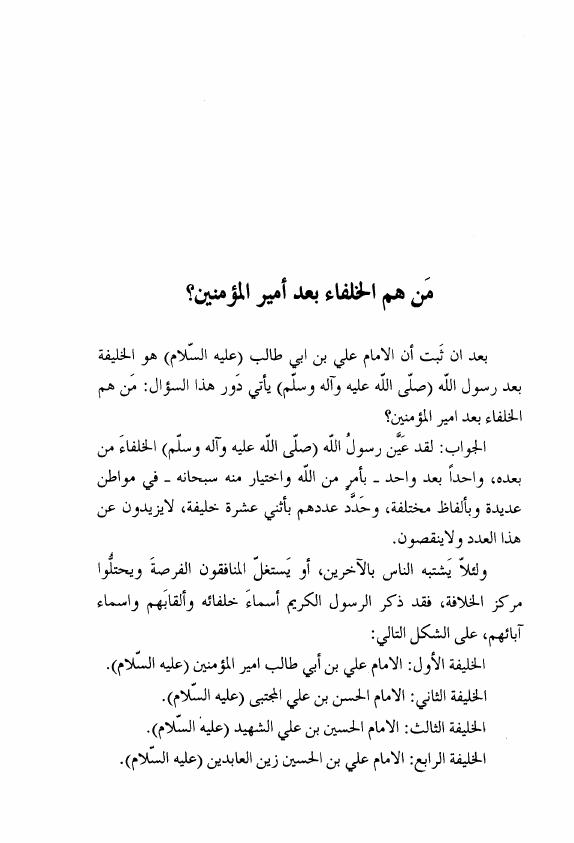 مَن هم الخلفاء بعد أمير المؤمنين؟
بعد ان ثَبت أن الامام علي بن ابي طالب (عليه السّلام) هو الخليفة
بعد رسول اللّه (صلّى اللّه عليه وآله وسلّم) يأتي دَور هذا السؤال: مَن هم
الخلفاء بعد امير المؤمنين؟
الجواب: لقد عَيَّن رسولُ اللّه (صلّى اللّه عليه وآله وسلّم) الخلفاءَ من
بعده، واحداً بعد واحد ـ بأمرٍ من اللّه واختيار منه سبحانه ـ في مواطن
عديدة وبألفاظ مختلفة، وحَدَّد عددهم بأثني عشرة خليفة، لايزيدون عن
هذا العدد ولاينقصون.
ولئلاّ يَشتبه الناس بالآخرين، أو يَستغلّ المنافقون الفرصةَ ويحتلُّوا
مركز الخلافة، فقد ذكر الرسول الكريم أسماءَ خلفائه وألقابَهم واسماء
آبائهم، على الشكل التالي:
الخليفة الأول: الامام علي بن أبي طالب امير المؤمنين (عليه السّلام).
الخليفة الثاني: الامام الحسن بن علي المجتبى (عليه السّلام).
الخليفة الثالث: الامام الحسين بن علي الشهيد (عليه السّلام).
الخليفة الرابع: الامام علي بن الحسين زين العابدين (عليه السّلام).